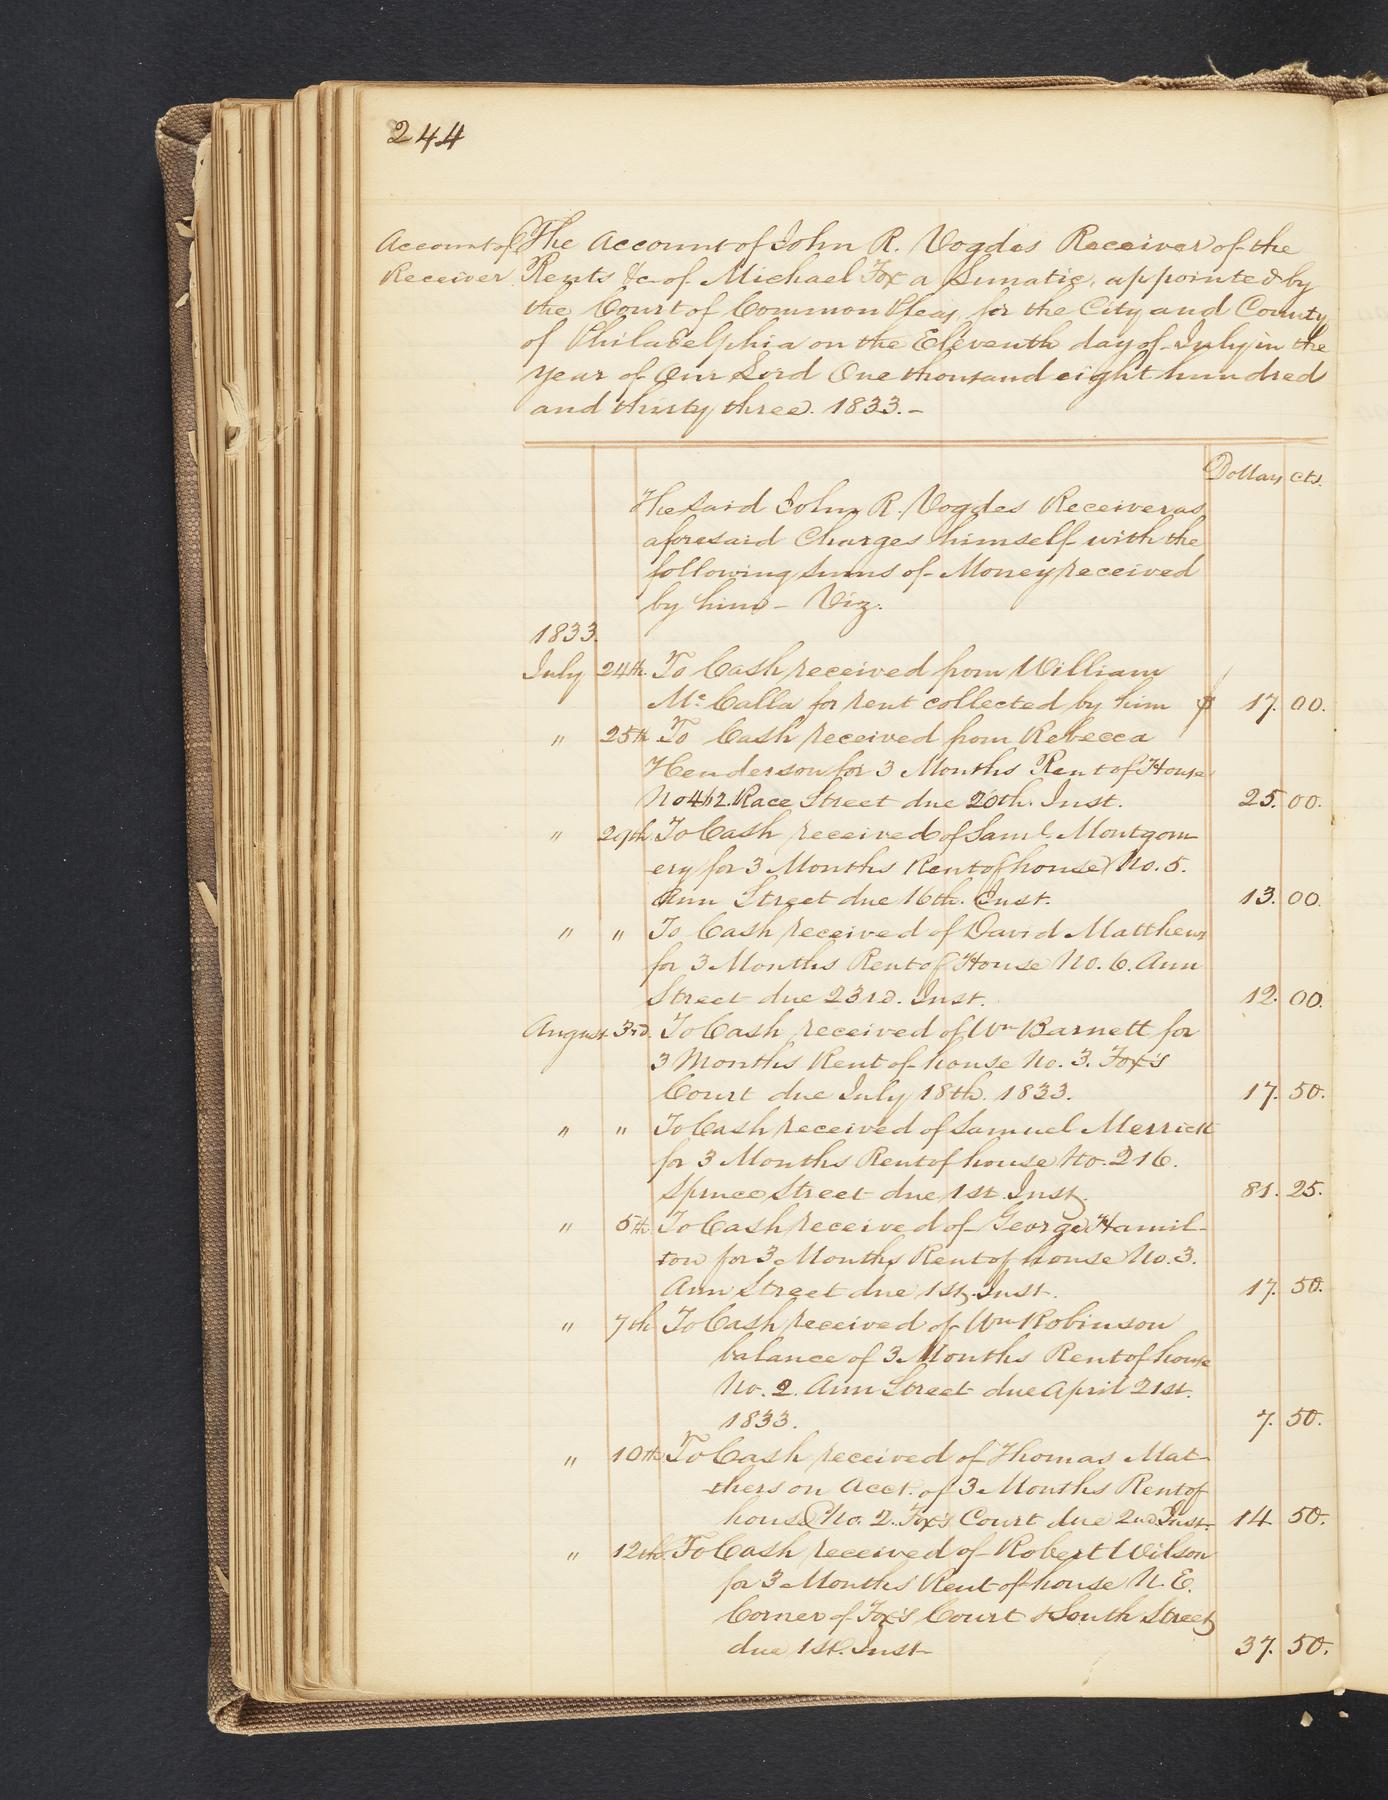 244
Account of
Receiver
The Account of John R. Vogdes Receiver of the
Rents &c of Michael Fox a Lunatic, appointed by
the Court of Common Pleas, for the City and County
of Philadelphia on the Eleventh day of July in the
year of Our Lord One thousand eight hundred
and thirty three. 1833.-
Dollars cts.
The said John R. Vogdes Receiver as
aforesaid Charges himself with the
following sums of Money received
by him - Viz:
1833.
July 24th. To Cash received from William
Mc. Calla for rent collected by him $ 17. 00.
" 25th To Cash received from Rebecca
Henderson for 3 Months Rent of House
No 412. Race Street due 20th. Inst. 25. 00.
" 29th To Cash received of Saml. Montgom
ery for 3 Months Rent of house No. 5.
Ann Street due 16th. Inst. 13. 00.
" " To Cash received of David Matthews
for 3 Months Rent of House No. 6. Ann
Street due 23rd. Inst. 12. 00.
August 3rd. To Cash received of Wm Barnett for
3 Months Rent of house No. 3. Fox's
Court due July 18th. 1833. 17. 50.
" " To Cash received of Samuel Merrick
for 3 Months Rent of house No. 216.
Spruce Street due 1st. Inst. 81. 25.
" 5th. To Cash received of George Hamil-
ton for 3 Months Rent of house No. 3.
Ann Street due 1st. Inst. 17. 50.
" 7th To Cash received of Wm Robinson
balance of 3 Months Rent of house
No. 2. Ann Street due April 21st.
1833. 7. 50.
" 10th. To Cash received of Thomas Mat-
thers on Acct. of 3 Months Rent of
house No. 2. Fox's Court due 2nd Inst. 14 50.
" 12th. To Cash received of Robert Wilson
for 3 Months Rent of house N. E.
Corner of Fox's Court & South Street
due 1st. Inst- 37. 50.